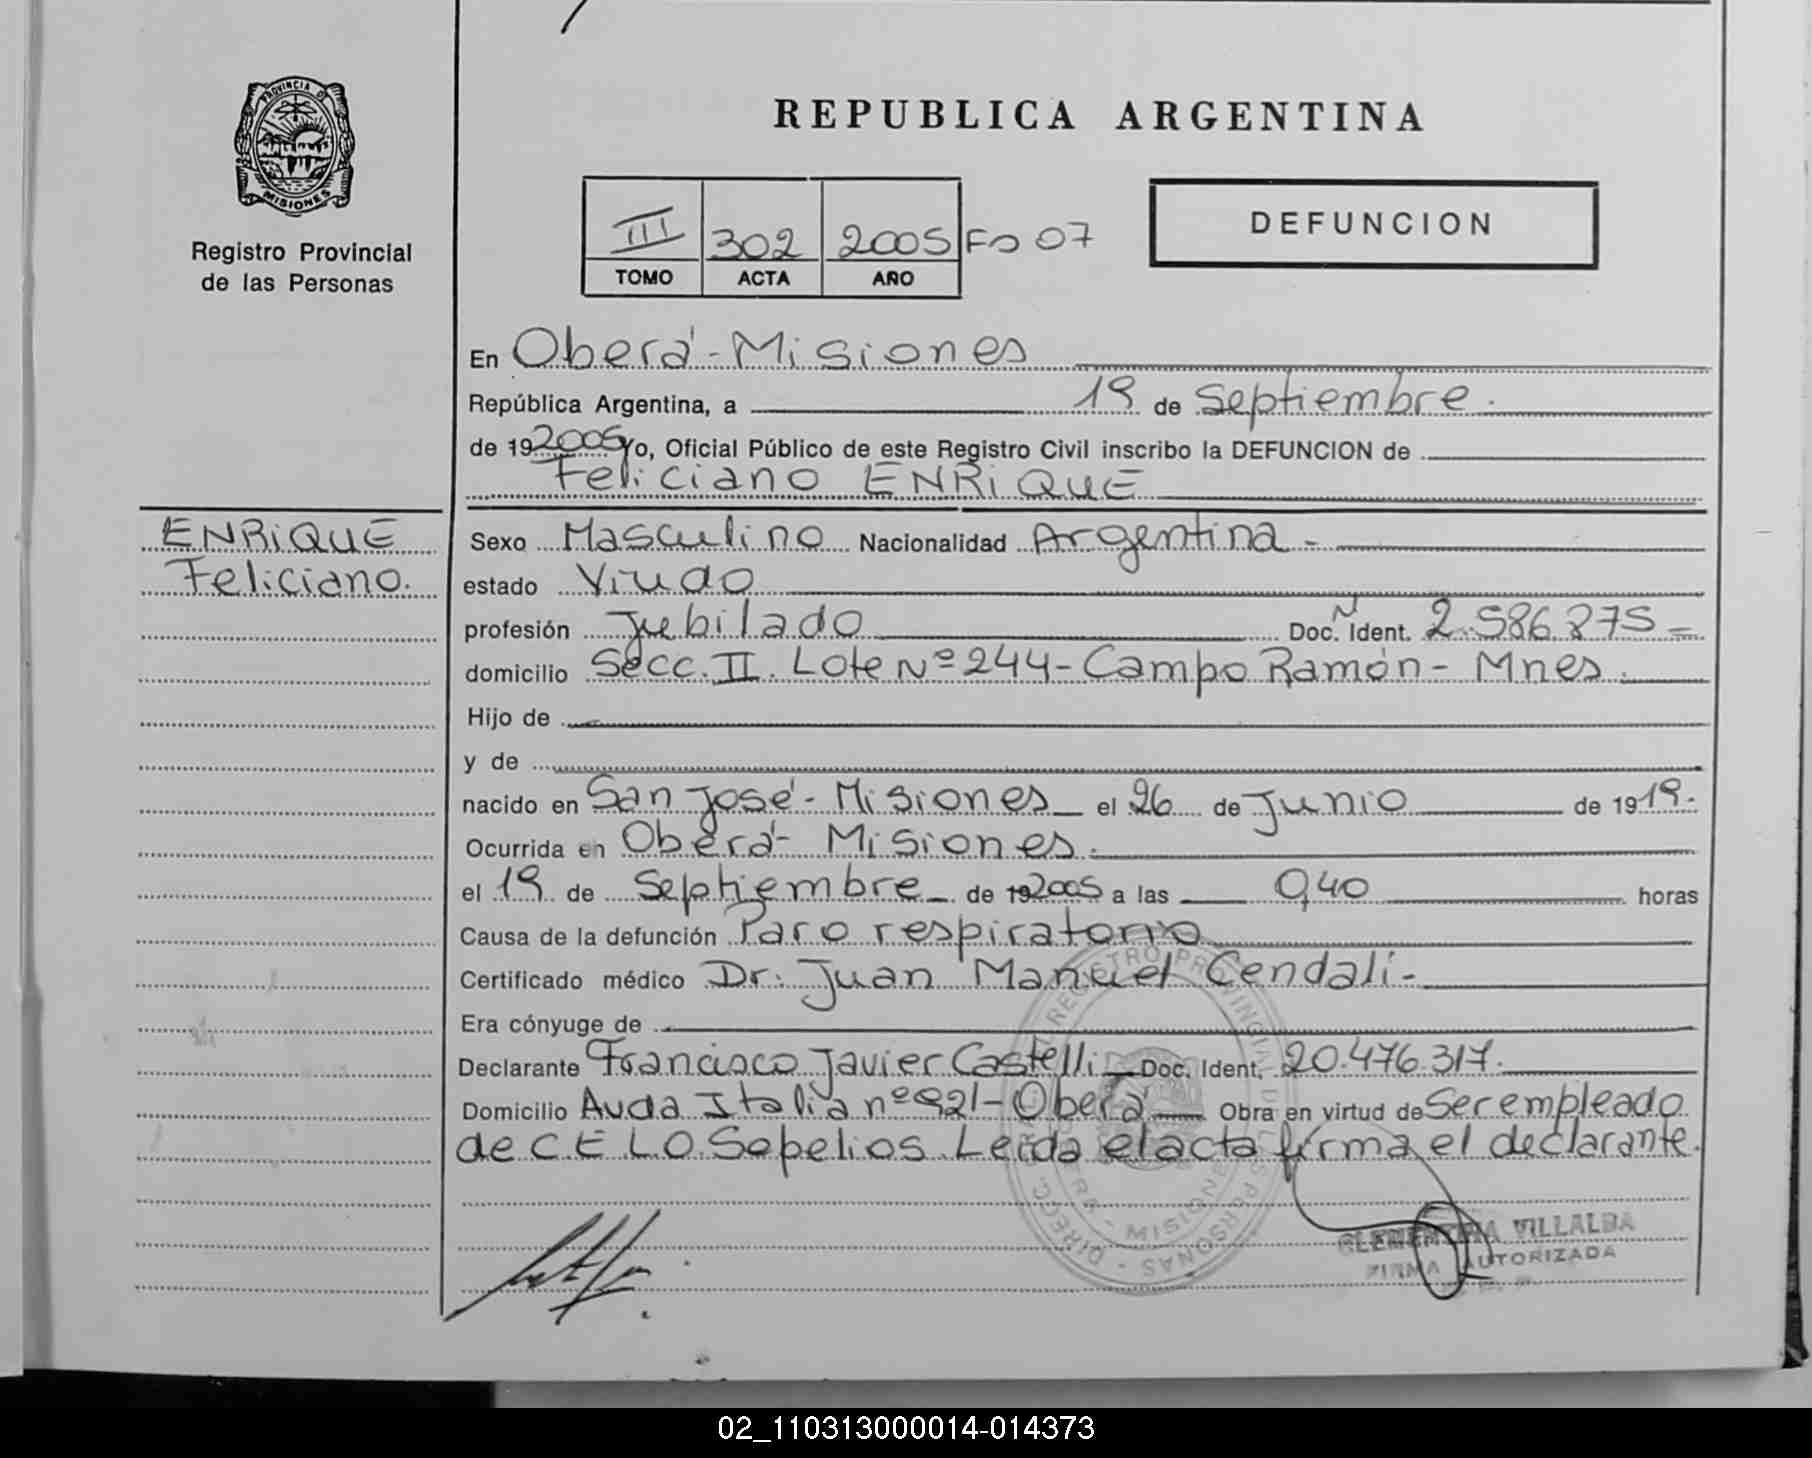 PROVINCIA DE
MISIONES
Registro Provincial
de las Personas
REPUBLICA ARGENTINA
III 302 2005 Fo 07
TOMO ACTA AÑO
DEFUNCION
En Oberá - Misiones
República Argentina, a 19 de Septiembre.
de 19 2005 Yo, Oficial Público de este Registro Civil inscribo la DEFUNCION de
Feliciano ENRIQUE
ENRIQUE
Feliciano.
Sexo Masculino Nacionalidad Argentina -
estado Viudo
profesión Jubilado Doc. Ident. Nº 2.586.875 -
domicilio Secc. II. Lote Nº 244 - Campo Ramón - Mnes.
Hijo de
y de
nacido en San José - Misiones el 26 de Junio de 1919.
Ocurrida en Oberá - Misiones.
el 19 de Septiembre de 19 2005 a las 0,40 horas
Causa de la defunción Paro respiratorio
Certificado médico Dr. Juan Manuel Cendali -
Era cónyuge de
Declarante Francisco Javier Castelli Doc. Ident. 20.476.317.
Domicilio Avda Italia nº 921 - Oberá Obra en virtud de Ser empleado
de C E L O Sepelios. Leida el acta firma el declarante.
MISIONES
CLEMENTINA VILLALBA
FIRMA AUTORIZADA
02_110313000014-014373